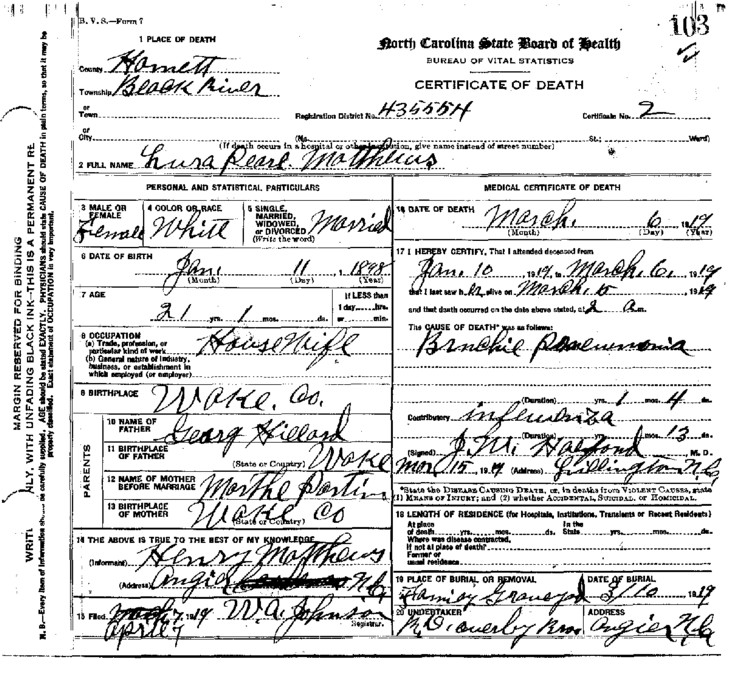 B. V. S.—Form 7
103
1 PLACE OF DEATH
North Carolina State Board of Health
BUREAU OF VITAL STATISTICS
CERTIFICATE OF DEATH
County Harnett
Township Black River
or
Town
Registration District No. 435554
Certificate No. 2
or
City
(No. St.; Ward)
(If death occurs in a hospital or other institution, give name instead of street number)
2 FULL NAME Lura Pearl Matthews
PERSONAL AND STATISTICAL PARTICULARS
3 MALE OR FEMALE
Female
4 COLOR OR RACE
White
5 SINGLE, MARRIED, WIDOWED, or DIVORCED (Write the word)
Married
6 DATE OF BIRTH
Jan. 11, 1898
(Month) (Day) (Year)
7 AGE
21 yrs. 1 mos. ds.
If LESS than 1 day hrs. or min.
8 OCCUPATION
(a) Trade, profession, or particular kind of work
House Wife
(b) General nature of industry, business, or establishment in which employed (or employer)
9 BIRTHPLACE
Wake. Co.
PARENTS
10 NAME OF FATHER
Georg
11 BIRTHPLACE OF FATHER
(State or Country) Wake
12 NAME OF MOTHER BEFORE MARRIAGE
Marthe Partin
13 BIRTHPLACE OF MOTHER
(State or Country)
Wake Co
14 THE ABOVE IS TRUE TO THE BEST OF MY KNOWLEDGE
(Informant) Henry Matthews
(Address) Angier N.C
15 Filed 7, 1919 W. A. Johnson
Registrar.
April 7
MEDICAL CERTIFICATE OF DEATH
16 DATE OF DEATH
March. 6 1919
(Month) (Day) (Year)
17 I HEREBY CERTIFY, That I attended deceased from
Jan. 10 1919, to March. 6. 1919
that I last saw her alive on March. 5 1919
and that death occurred on the date above stated, at 2 a.m.
The CAUSE OF DEATH* was as follows:
Brnchie
(Duration) yrs. 1 mos. 4 ds.
Contributory influenza
(Duration) yrs. mos. 13 ds.
(Signed) J. M. Halford, M. D.
Mar 15, 1919 (Address) Lillington N.C
*State the DISEASE CAUSING DEATH, or, in deaths from VIOLENT CAUSES, state (1) MEANS OF INJURY; and (2) whether ACCIDENTAL, SUICIDAL, or HOMICIDAL.
18 LENGTH OF RESIDENCE (for Hospitals, Institutions, Transients or Recent Residents)
At place of death yrs. mos. ds. In the State yrs. mos. ds.
Where was disease contracted, if not at place of death?
Former or usual residence
19 PLACE OF BURIAL OR REMOVAL
Graveyard
DATE OF BURIAL
3/10 1919
20 UNDERTAKER
Bros
ADDRESS
Angier N.C
MARGIN RESERVED FOR BINDING
WRITE ONLY, WITH UNFADING BLACK INK—THIS IS A PERMANENT RE
N. B.—Every item of information sh be carefully supplied. AGE should be stated EXACTLY. PHYSICIANS should state CAUSE OF DEATH in plain terms, so that it may be properly classified. Exact statement of OCCUPATION is very important.